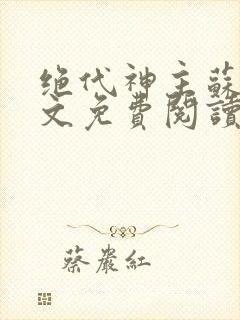 绝代神主蘇
文免費閱讀
蔡嚴紅